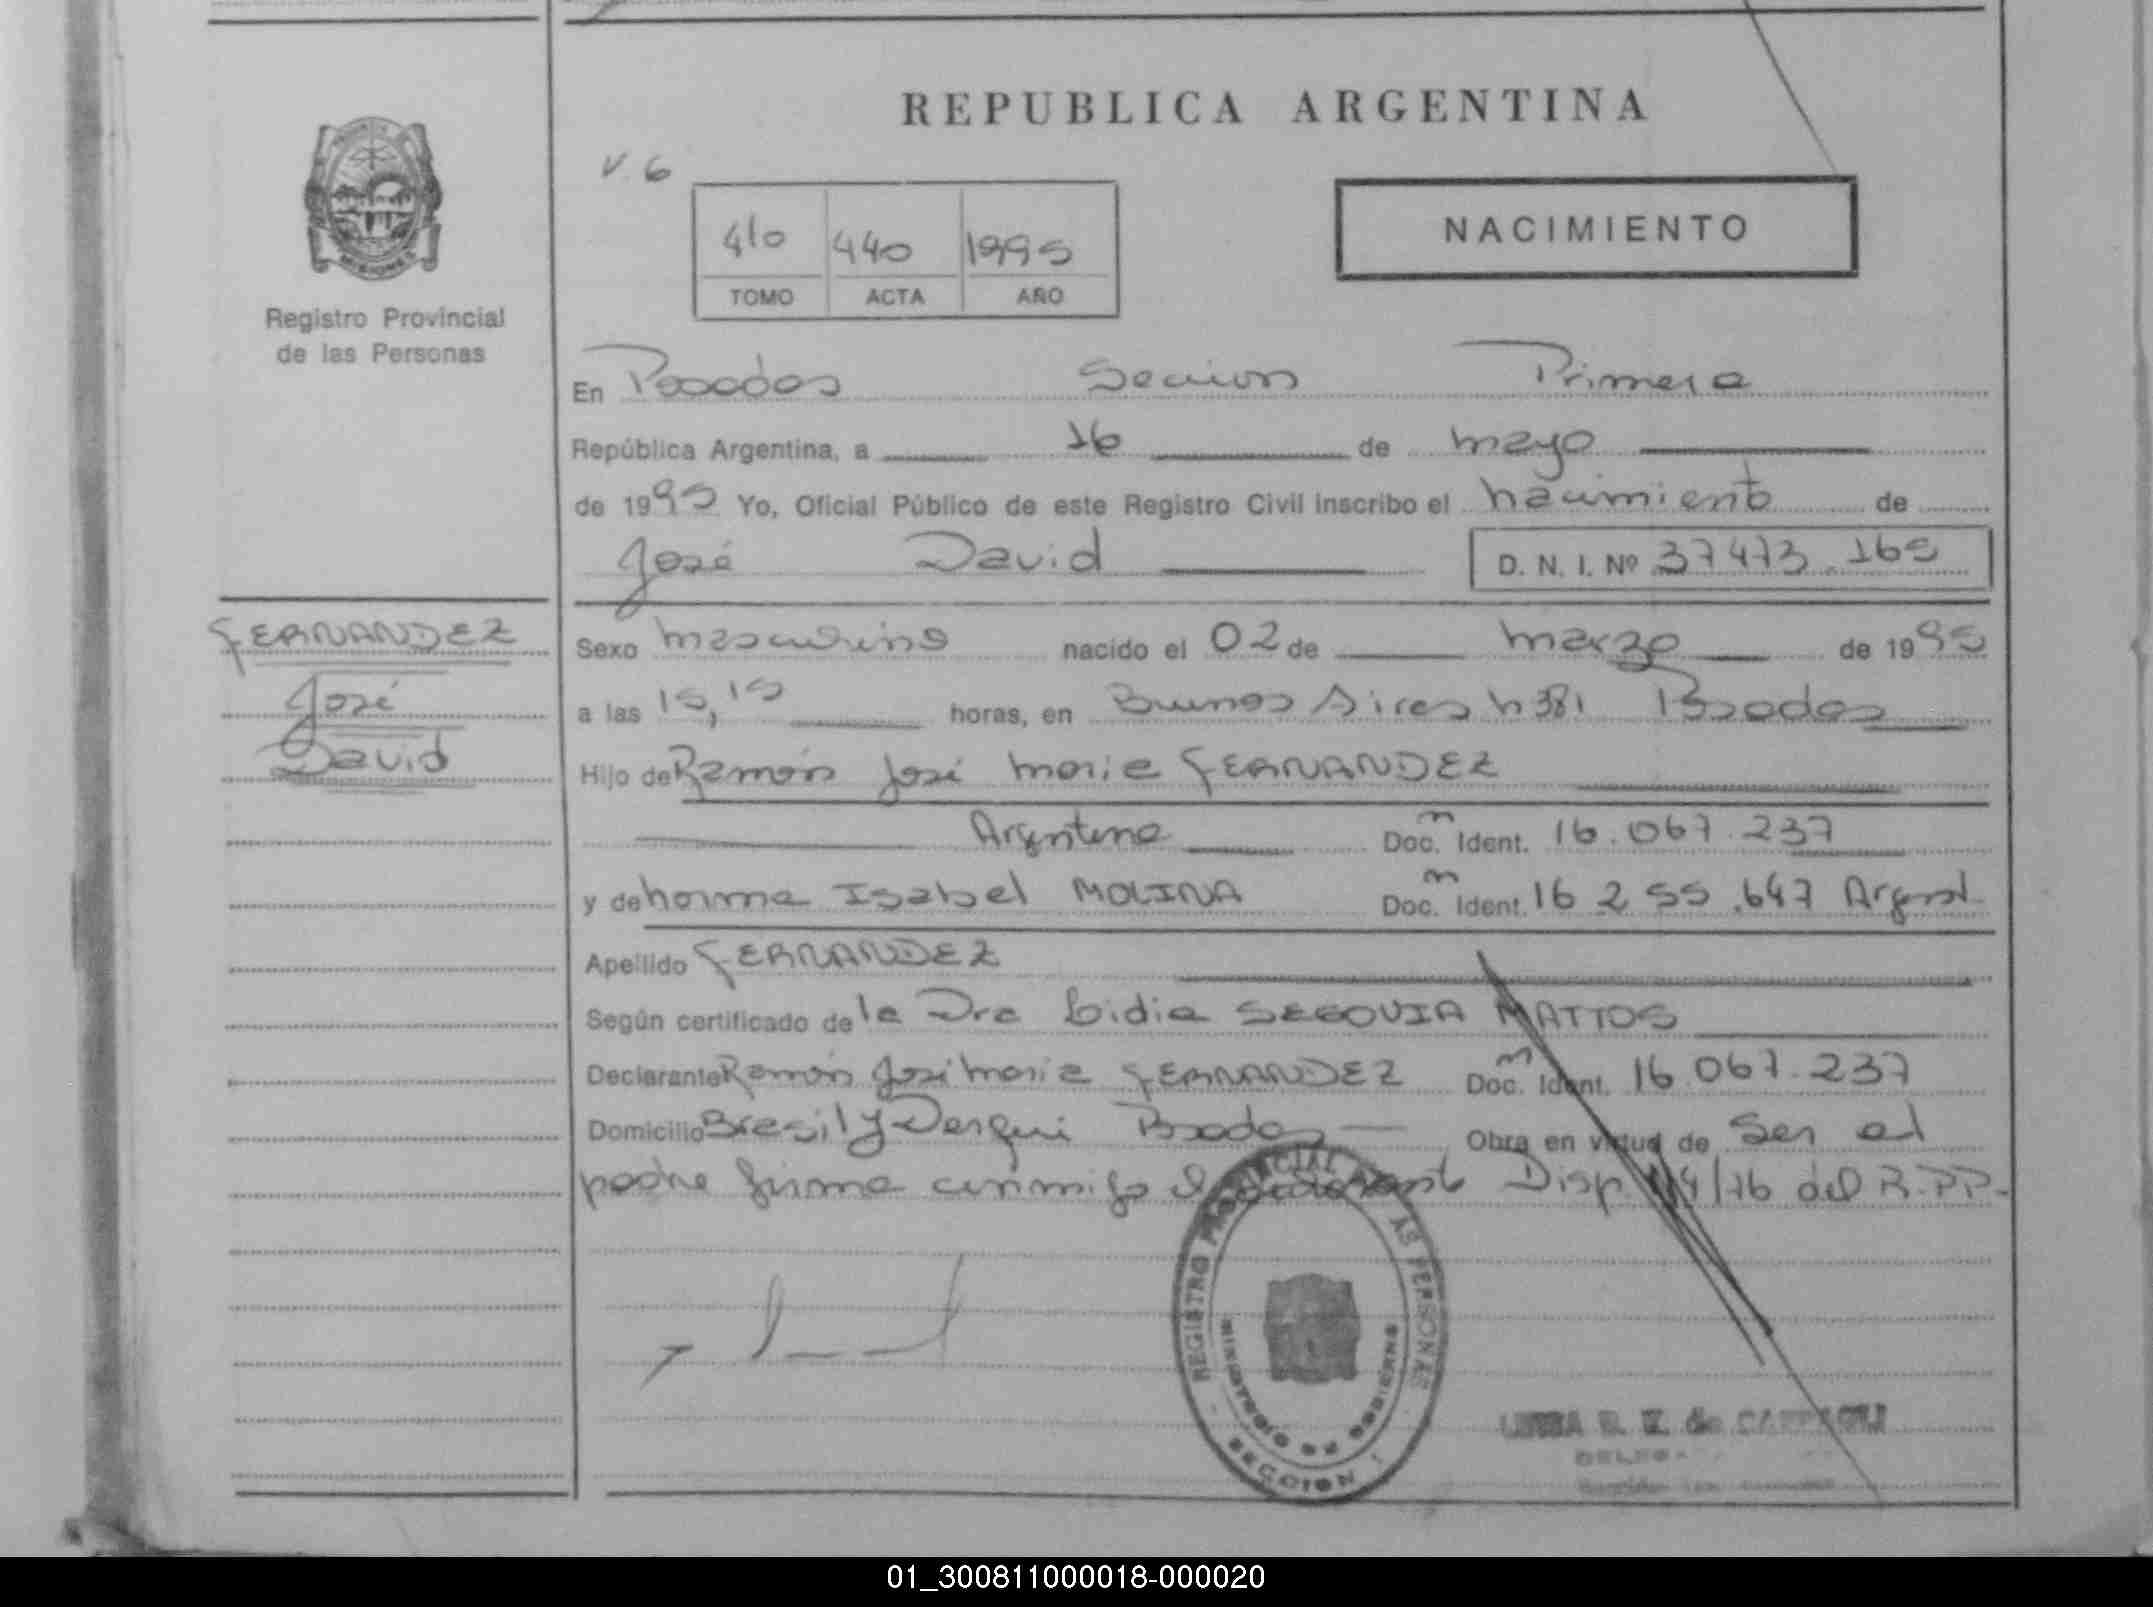 REPUBLICA ARGENTINA
V. 6
NACIMIENTO
410 440 1995
TOMO ACTA AÑO
MISIONES
Registro Provincial
de las Personas
En Posadas Seccion Primera
República Argentina, a 16 de mayo
de 1995 Yo, Oficial Público de este Registro Civil inscribo el nacimiento de
José David D. N. I. Nº 37473.165
FERNANDEZ
José
David
Sexo masculino nacido el 02 de marzo de 1995
a las 15,15 horas, en Buenos Aires n 381 Posadas
Hijo de Ramón José Maria FERNANDEZ
Argentino Doc. m Ident. 16.067.237
y de Norma Isabel MOLINA Doc. m Ident. 16 255.647 Argent.
Apellido FERNANDEZ
Según certificado de la Dra Lidia SEGOVIA MATTOS
Declarante Ramón José Maria FERNANDEZ Doc. m Ident. 16 067.237
Domicilio Brasil y Derqui Posadas Obra en virtud de Ser el
padre firma conmigo el declarante Disp 14/76 del R.P.P.-
REGISTRO PROVINCIAL LAS PERSONAS
MINISTERIO DE GOBIERNO
SECCION
de
01_300811000018-000020